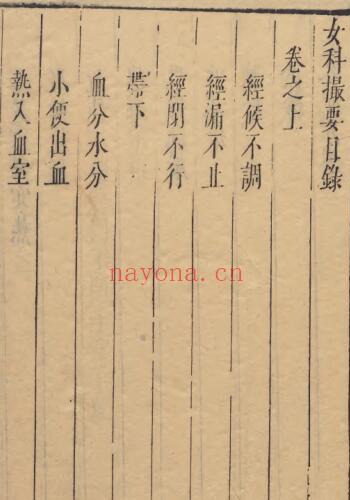 女科撮要目錄
卷之上
經候不調
經漏不止
經閉不行
帶下
血分水分
小便出血
熱入血室
nayona.cn